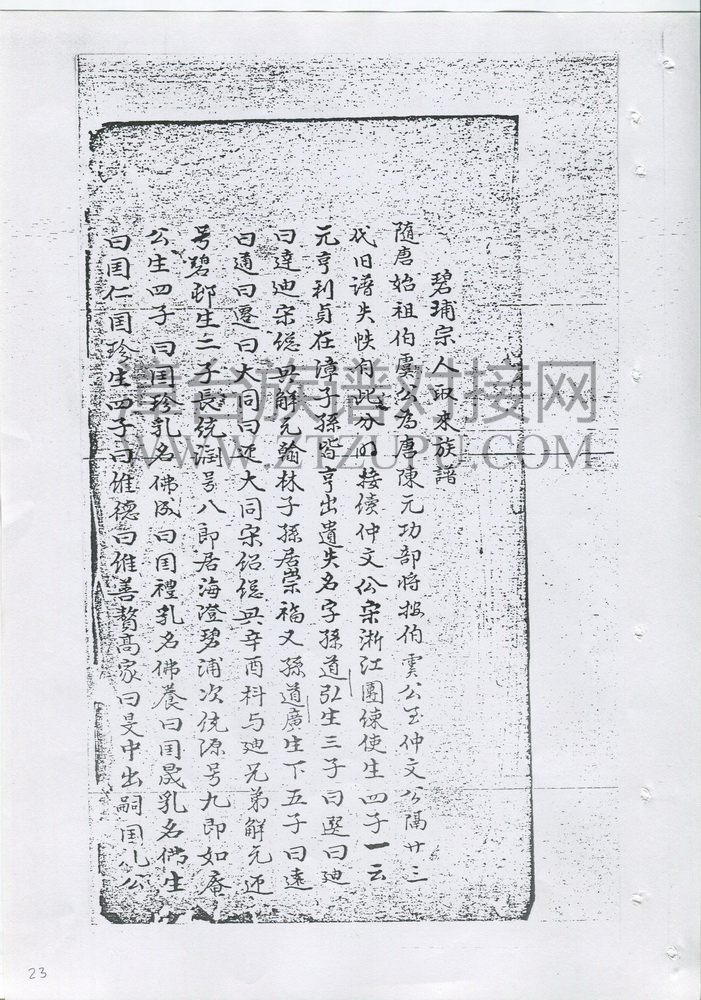 碧埔宗人取来族譜
隨唐始祖伯虞公為唐陳元功部将按伯虞公至仲文公隔廿三
代旧譜失帙有此分明接續仲文公宋浙江團練使生四子一云
元亨利貞在漳子孫皆亨出遺失名字孫道弘生三子曰選曰迪
曰達迪宋紹興解元翰林子孫居崇福又孫道廣生下五子曰遠
曰通曰還曰大同曰还大同宋紹興辛酉科与迪兄弟解元还
号碧邨生二子長統润号八郎居海澄碧浦次統源号九郎如庵
公生四子曰国珍乳名佛成曰国禮乳名佛養曰国晟乳名佛生
曰国仁国珍生四子曰維德曰維善贅高家曰旻中出嗣国礼公
臺台族谱对接网
WWW.ZTZUPU.COM
23